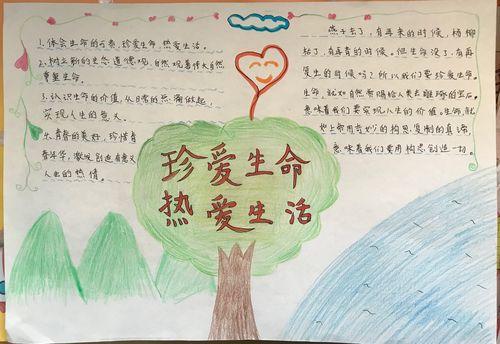 1.体会生命的可贵,珍爱生命,热爱生活。
2.树立新的生态道德观,自然观尊伟大自然
重生命。
3.认识生命的价值,从日常的点滴做起,
实现人生的意义。
4.青春的美好,珍惜青
春年华,激发创造有意义
人生的热情。
燕子去了,有再来的时候,杨柳
枯了,有再青的时候。但生命没了,有再
复生的时候吗?所以我们要珍爱生命。
生命,就如自然界赐给人类去雕琢的宝石。
意味着我们要实现人生的价值。生命,就
地上都用奇妙的构思
意味着我们要用构思创造一切。
珍爱生命
热爱生活